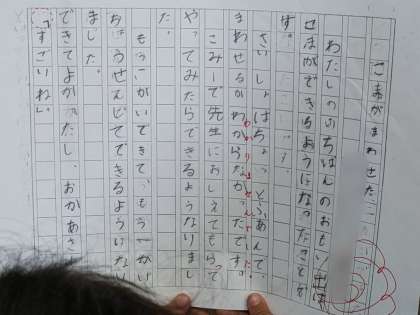 こまがまわせた
わたしのいちばんのおもい出は
せまができるようになったことで
す。
さいしょはちょっとふあんで、
まわせるかわからなかったです。
かりませんでした。
こみーで先生におしえてもらって
やってみたらできるようなりまし
た。
もういかいできて、もういっかい
ちょうせんしてできるようになり
ました。
できてよかったし、おかあさ
「すごいね。